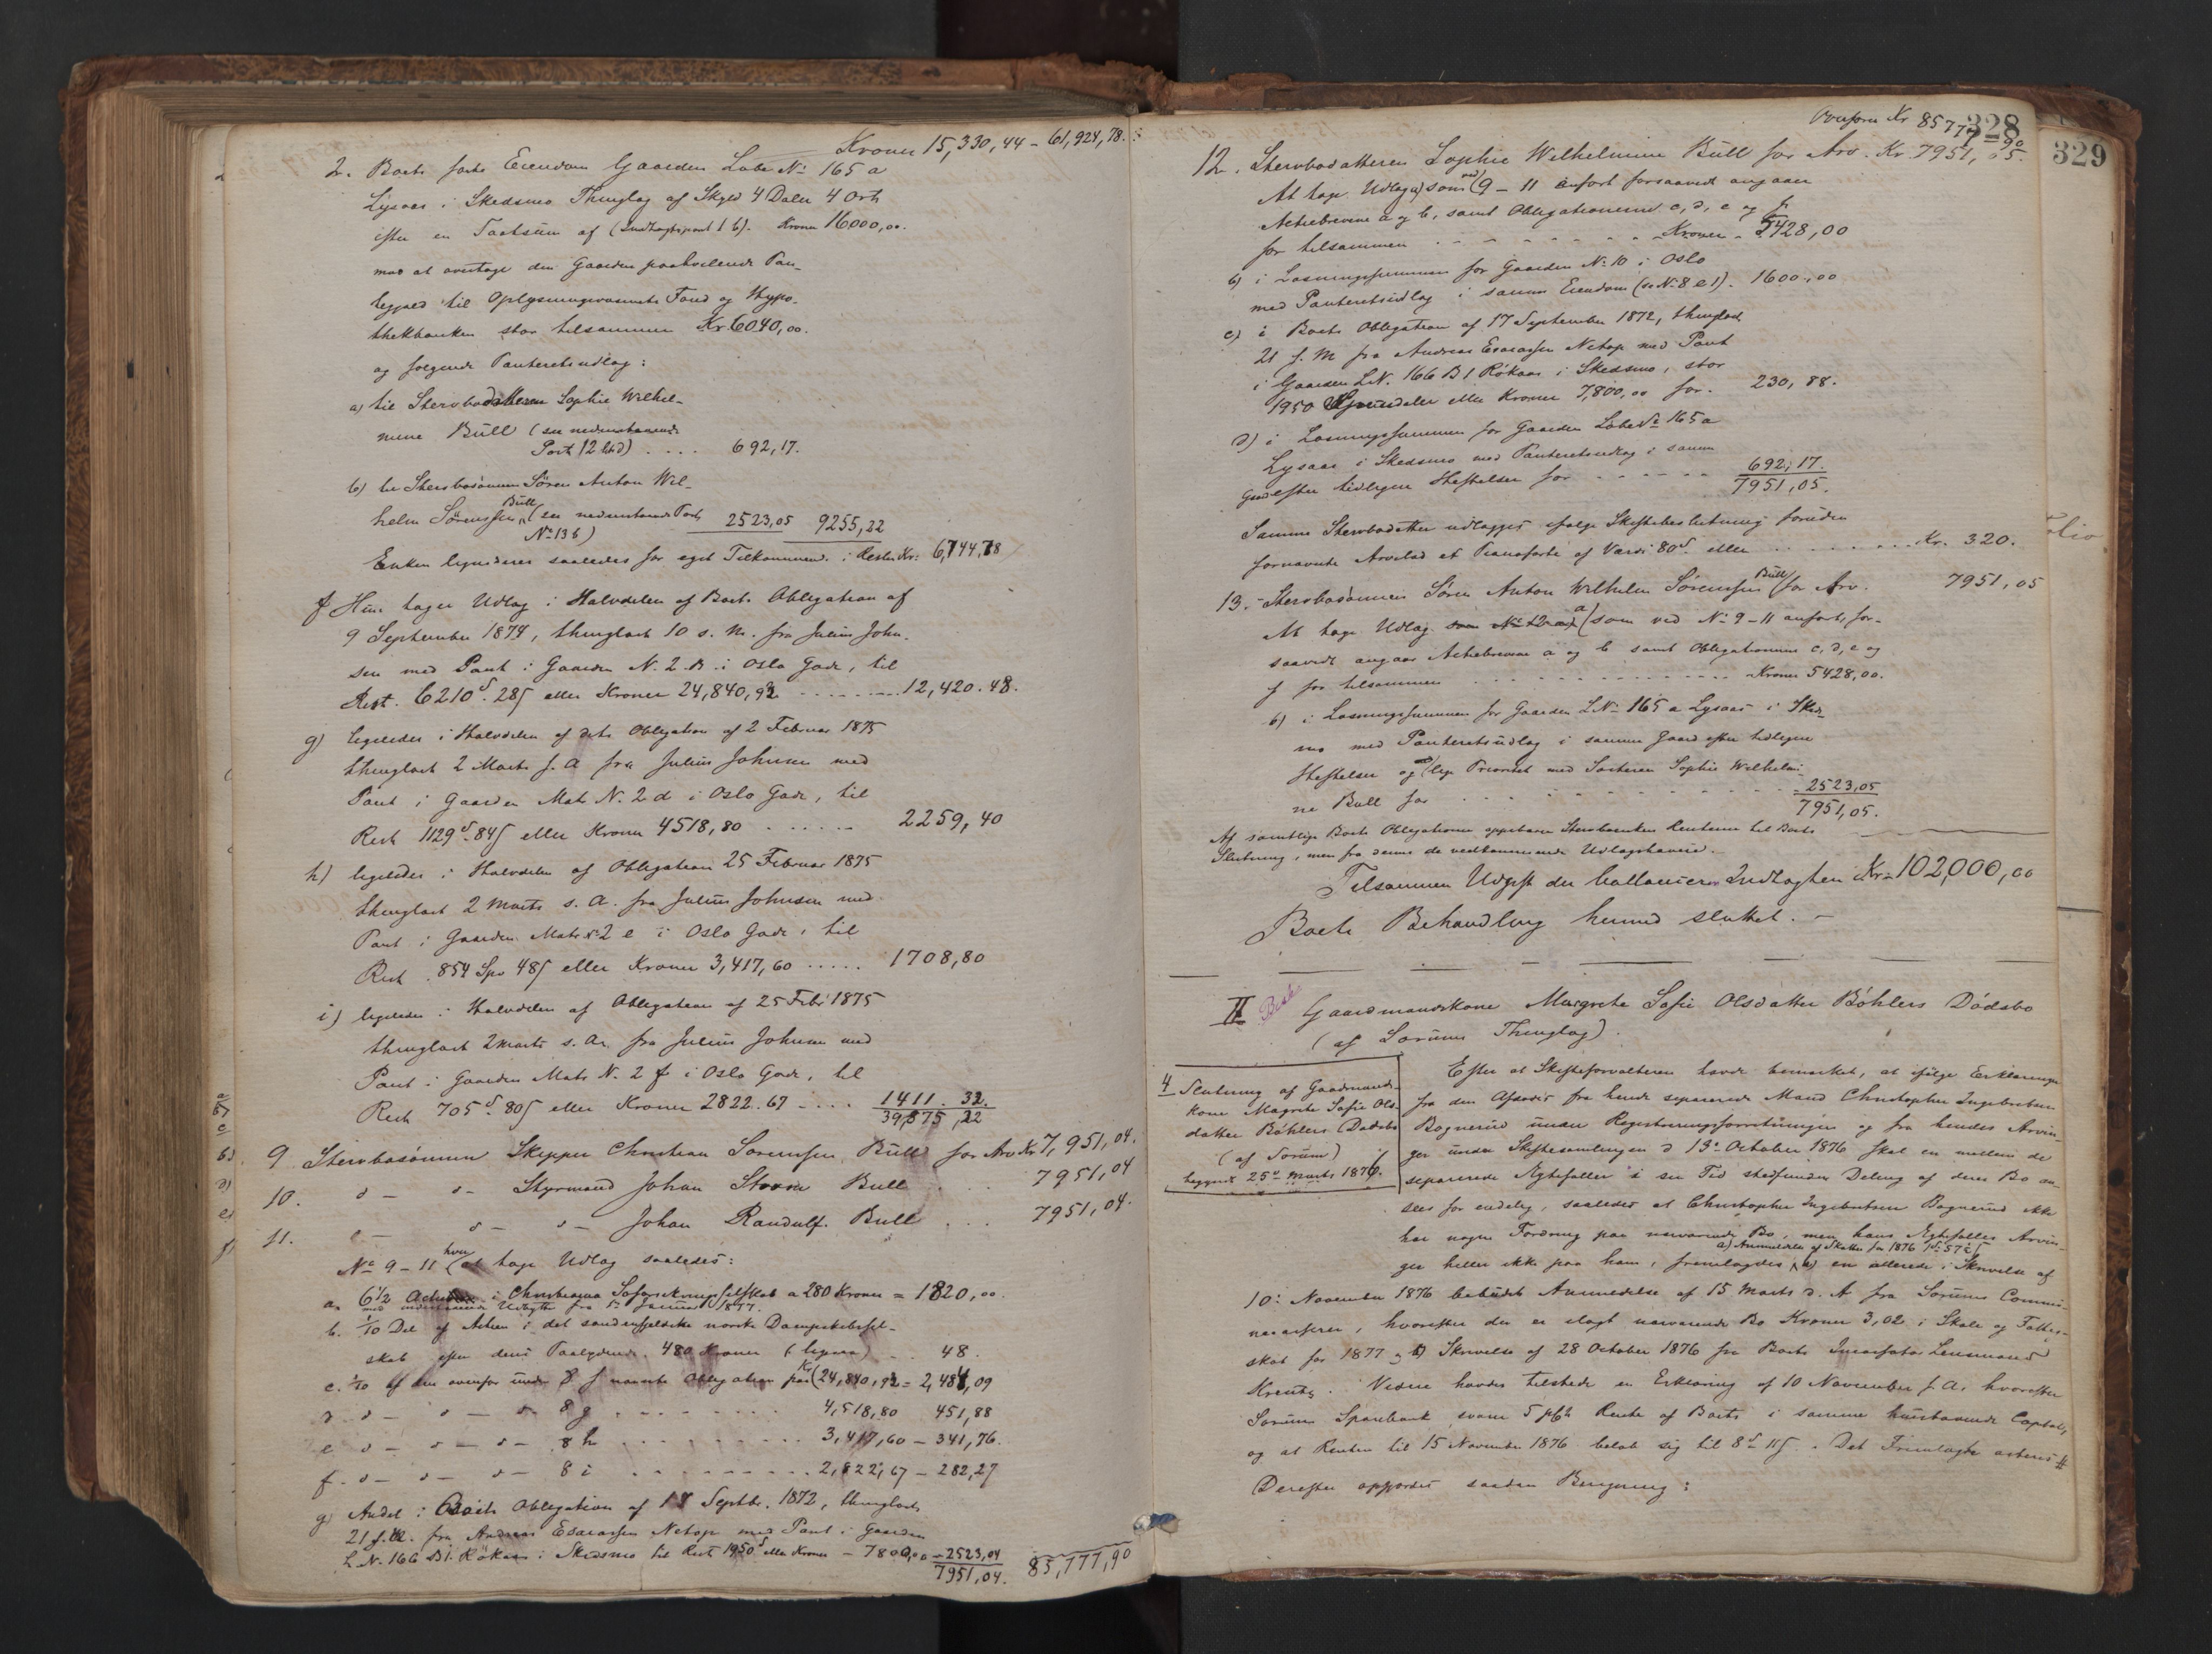 Kroner 15,330,44 – 61,924,78.
2. Boets faste Eiendom Gaarden Løbe No 165 a
Lysaas i Skedsmo Thinglag af Skyld 4 Daler 4 Ort
efter en Taxtsum af (Indtægtspost 1 b). Kroner 16000,00.
mod at overtage den Gaarden paahvilende Pan-
tegjæld til Oplysningsvæsenets Fond og Hypo-
thekbanken stor tilsammen Kr. 6040,00.
og følgende Panteretsudlæg:
a) til Stervbodatteren Sophie Wilhel-
mine Bull (see nedenstaaende
Post 12 lit d) . . . . 692,17.
b) til Stervbosønnen Søren Anton Wil-
helm Sørenssen Bull (see nedenstaaende Post
No 13 b) 2523,05 9255,22
Enken ligvideres saaledes for eget Tilkommende i Resten Kr. 6,744,78
f Hun tager Udlæg i Halvdelen af Boets Obligation af
9 September 1874, thinglæst 10 s. M. fra Julius John-
sen med Pant i Gaarden N. 2 B i Oslo Gade, til
Rest. 6210 d. 28 s eller Kroner 24,840,92 . . . . . 12,420.48.
g) ligeledes i Halvdelen af dets Obligation af 2 Februar 1875
thinglæst 2 Marts s. A fra Julius Johnsen med
Pant i Gaarden Mats N. 2 d i Oslo Gade, til
Rest 1129 d. 84 s eller Kroner 4518,80 . . . . . 2259,40
h) ligeledes i Halvdelen af Obligation 25 Februar 1875
thinglæst 2 Marts s. A. fra Julius Johnsen med
Pant i Gaarden Mats N. 2 e i Oslo Gade, til
Rest 854 Spd 48 s eller Kroner 3,417,60 . . . . . 1708,80
i) ligeledes i Halvdelen af Obligation af 25 Febr 1875
thinglæst 2 Marts s. A. fra Julius Johnsen med
Pant i Gaarden Mats N. 2 f i Oslo Gade, til
Rest 705 d. 80 s eller Kroner 2822.67 . . . . 1411.32.
39,875,22
9 Stervbosønnen Skipper Christian Sørensen Bull for Arv Kr 7,951,04.
10. d – d – Styrmand Johan Storm Bull . . 7951,04
11. d – d – Johan Randulf Bull . . . 7951,04.
No 9 – 11 hver at tage Udlæg saaledes:
a. 6 1/2 Actier i Christiania Søforsikringsselskab a 280 Kroner = 1820,00.
med indestaaende Udbytte fra 1 Januar 1877.
b. 1/10 Del af Actien i det søndenfjeldske norske Dampskibssel-
skab efter dens Paalydende 480 Kroner (ligesaa) – 48.
c. 1/10 af den ovenfor under 8 f nævnte Obligation paa Kr (24,840,92 = 2,484,09
d. d – d – d. 8 g . . . . . . . 4,518,80 451,88
e d – d – d – 8 h . . . . . . . 3,417,60 – 341,76.
f. d – d – d – 8 i . . . . . . . 2,822,67 – 282,27
g) Andel i Boets Obligation af 17 Septbr. 1872, thinglæst
21 s. M. fra Andreas Esaiassen Netop med Pant i Gaarden
L. N. 166 B 1. Rökaas i Skedsmo til Rest 1950 d eller Kroner – 7800,00 – 2523,04
7951,04. 85,777,90
Overført Kr 85777,90
328
329
12. Stervbodatteren Sophie Wilhelmine Bull for Arv. Kr. 7951,05.
At tage Udlæg a) som ved 9 – 11 anført forsaavidt angaaer
Actiebrevene a og b, samt Obligationerne c, d, e og f
for tilsammen . . . . . . . Kroner 5428,00
b) i Løsningssummen for Gaarden No 10 i Oslo
med Panteretsudlæg i samme Eiendom (se No 8 e 1). 1600,00
c) i Boets Obligation af 17 September 1872, thinglæst
21 s. M fra Andreas Esaiassen Netop med Pant
i Gaarden L. N. 166 B 1 Rökaas i Skedsmo, stor
1950 Speciedaler eller Kroner 7,800,00 for. 230,88.
d) i Løsningssummen for Gaarden Løbe No 165 a
Lysaas i Skedsmo med Panteretsudlæg i samme
Gaard efter tidligere Heftelser for . . . . . 692,17.
7951,05.
Samme Stervbodatter udlægges ifølge Skiftebeslutning foruden
fornævnte Arvelod et Pianoforte af Værdi 80 d. eller . . . . . Kr. 320.
13. Stervbosønnen Søren Anton Wilhelm Sørenssen Bull for Arv. 7951,05
At tage Udlæg som No 12 a a (som ved No 9 – 11 anført, for-
saavidt angaar Actiebrevene a og b samt Obligationerne c, d, e og
f for tilsammen . . . . . . . . . . Kroner 5428,00.
b) i Løsningssummen for Gaarden L No 165 a Lysaas i Skeds-
mo med Panteretsudlæg i samme Gaard efter tidligere
Heftelser og med lige Prioritet med Søsteren Sophie Wilhelmi-
ne Bull for . . . . . . . . . . 2523,05
7951,05.
Af samtlige Boets Obligationer oppebærer Stervboenken Renterne til Boets
Slutning, men fra denne de vedkommende Udlægshavere.
Tilsammen Udgift der ballancerer Indtægten Kr. 102,000,00
Boets Behandling hermed sluttet. –
II Besk Gaardmandskone Margrete Sofie Olsdatter Böhlers Dødsbo
(af Sørums Thinglag).
4 Slutning af Gaardmands-
kone Magrete Sofie Ols-
datter Böhlers Dødsbo
(af Sørum)
begyndt 25 d Marts 1876.
Efter at Skifteforvalteren havde bemærket, at ifølge Erklæringer
fra den Afdødes fra hende separerede Mand Christopher Ingebretsen
Bognerud under Registreringsforretningen og fra hendes Arvin-
ger under Skiftesamlingen d 13 October 1876 skal en mellem de
separerede Ægtefæller i sin Tid stedfunden Deling af deres Bo an-
sees for endelig, saaledes at Christopher Ingebretsen Bognerud ikke
har nogen Fordring paa nærværende Bo, men hans Ægtefælles Arvin-
a) Anmeldelse af Skatter for 1876 1 d 57 s
ger heller ikke paa ham, fremlagdes b) en allerede i Skrivelse af
10. November 1876 bebudet Anmeldelse af 15 Marts d. A fra Sørums Commu-
nekasserer, hvorefter der er ilagt nærværende Bo Kroner 3,02 i Skole og Fattig-
skat for 1877 og c) Skrivelse af 28 October 1876 fra Boets Incassator Lensmand
Krentz. Videre havdes tilstede en Erklæring af 10 November f. A. hvorefter
Sørums Sparebank svarer 5 pCt Rente af Boets i samme indestaaende Capital,
og at Renten til 15 November 1876 beløb sig til 8 d 11 s. Det Fremlagte acteres #
Derefter opgjordes saadan Beregning: